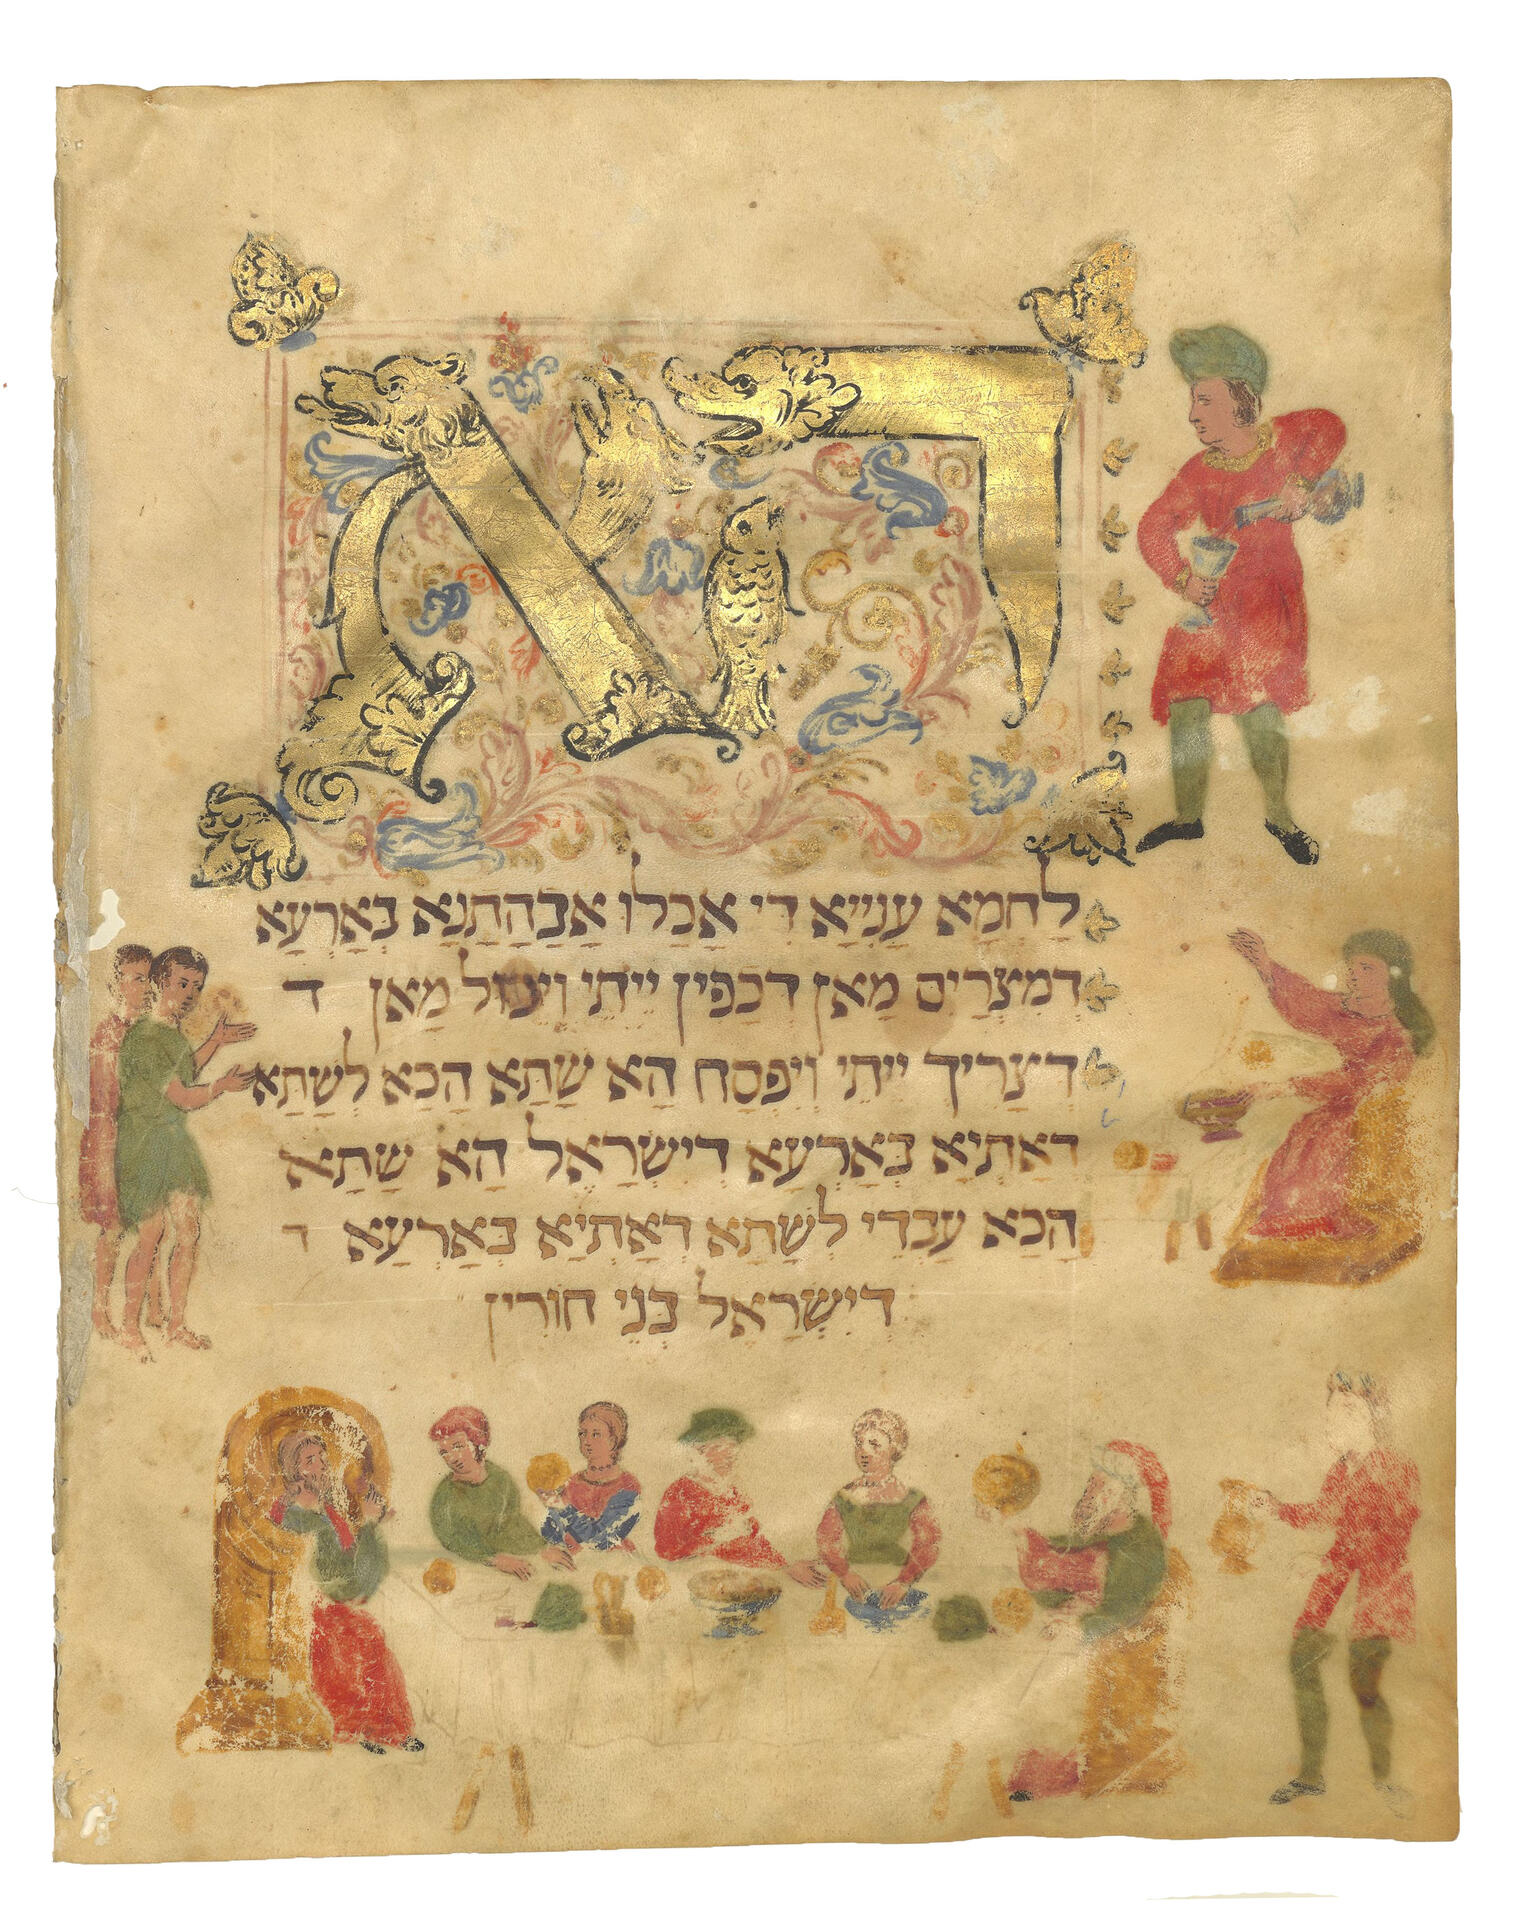 הא
לַחְמָא עַנְיָיא דִי אֲכַלוּ אַבָהָתַנָא בְּאַרְעָא
דְמִצְרַיִם מַאן דְכַפִין יֵיתֵי וְיֵכוּל מַאן ד
דְצָרִיך יֵיתֵי וְיִפְסַח הָא שַׁתָּא הָכָא לְשַׁתָּא
דְאַתְיָא בְּאַרְעָא דְישְׂרָאֵל הָא שַׁתָּא
הָכָא עַבְדֵי לְשַׁתָּא דְאַתְיָא בְּאַרְעָא ד
דְיִשְׂרָאֵל בְּנֵי חוֹרִין